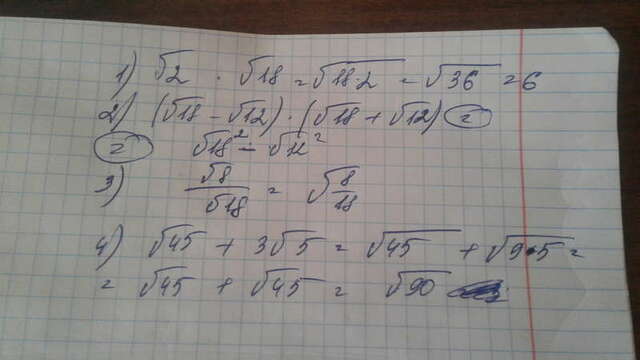 1) √2 · √18 = √18·2 = √36 = 6
2) (√18 - √12) · (√18 + √12) =
= √18² - √12²
3) √8/√18 = √8/18
4) √45 + 3√5 = √45 + √9·5 =
= √45 + √45 = √90